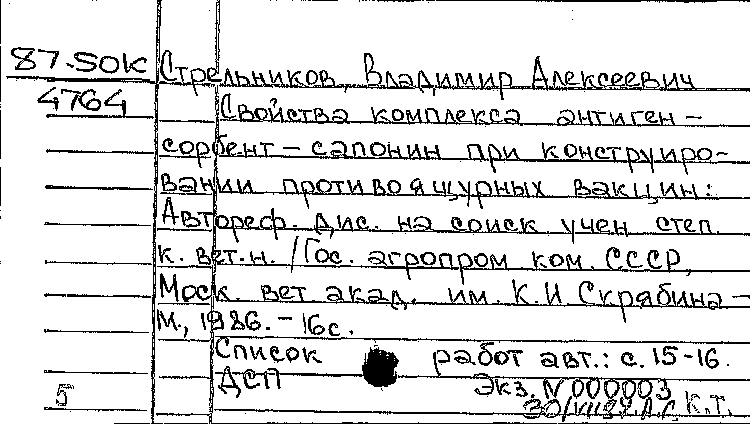 87-SOK Стрельников, Владимир Алексеевич
4764 Свойства комплекса антиген-
сорбент-сапонин при конструиро-
вании противоящурных вакцин:
Автореф. дис. на соиск. учен степ.
к. вет.н. /Гос. агропром ком. СССР,
Моск. вет акад. им. К.И. Скрябина-
М., 1986.-16с.
Список работ авт.: с. 15-16.
ДСП Экз. N000003
5 К.Т.